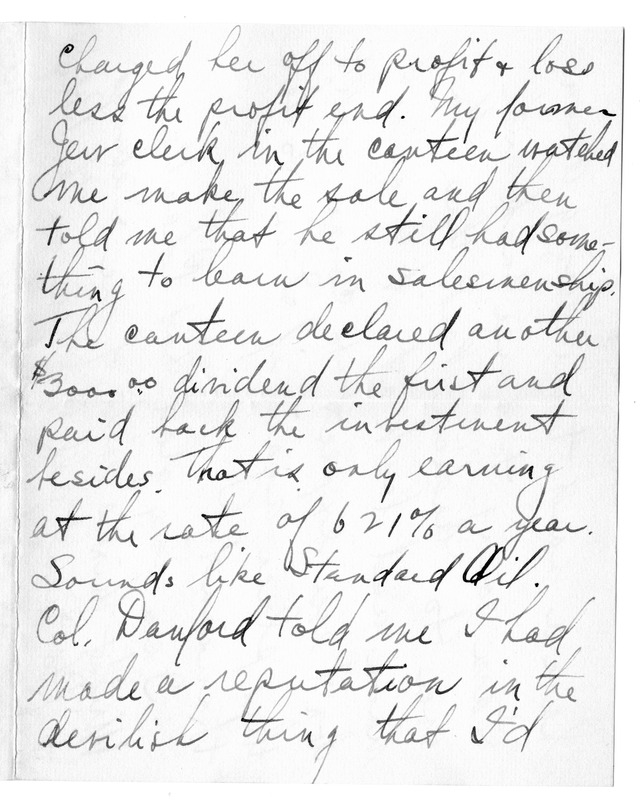 charged her off to profit & loss
less the profit end. My former
Jew clerk in the canteen watched
me make the sale and then
told me that he still had some-
thing to learn in salesmenship.
The canteen declared another
$3000.00 dividend the first and
paid back the investment
besides. That is only earning
at the rate of 621% a year.
Sounds like Standard Oil.
Col. Danford told me I had
made a reputation in the
devilish thing that I'd